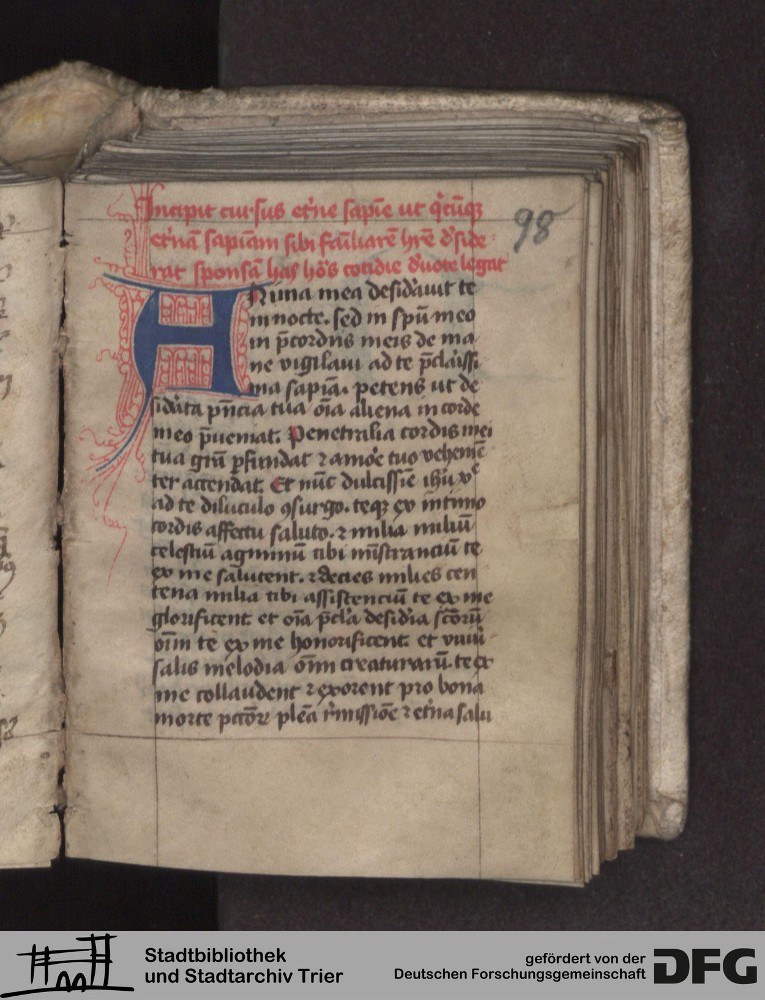 Incipit cursus et̄ne sapīe ut q̇cūq̨
98
et̄nā sapiāM sibi fāiliarē h̄re d̓side
rat sponsā has ho̅s cotidie d̓uote legat
ANima mea desid̓auit te
in nocte. sed in sp̄u meo
in p̄cordiis meis de ma
ne vigilaui ad te p̄clarissi
ma sapīa. petens ut de
sid̓ata p̄n̄cia tua o̅ia aliena in corde
meo p̄ueniat. Penetralia cordis mei
tua gr̄a p̄fundat ⁊ amo̅e tuo vehemē
ter accendat. Et nūc dulcissīe ih̄u xp̄e
ad te diluculo ꝯsurgo. teq̨ ex intimo
cordis affectu saluto. ⁊ milia miliū
celestiū agminū tibi mīstranciū te
ex me salutent. ⁊ decies milies cen
tena milia tibi assistenciū te ex me
glorificent et o̅ia p̄cl̄a desid̓ia sc̄orū
o̅im te ex me honorificent. et vniū
salis melodia o̅im creaturarū. te ex
me collaudent ⁊ exorent pro bona
morte pctōr̄ plēa r̓missiōe ⁊ et̓na salu
Stadtbibliothek
und Stadtarchiv Trier
gefördert von der
Deutschen Forschungsgemeinschaft
DFG